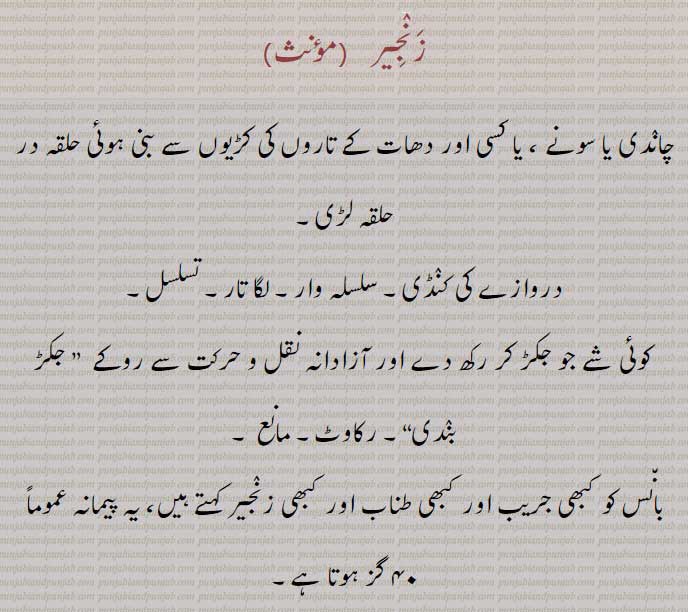 زَنْجِیر (مؤنث)
چانْدی یا سونے ، یا کسی اور دھات کے تاروں کی کڑیوں سے بنی ہوئی حلقہ در
حلقہ لڑی ۔
دروازے کی کنْڈی ۔ سلسلہ وار ۔ لگا تار ۔ تسلسل ۔
کوئی شے جو جکڑ کر رکھ دے اور آزادانہ نقل و حرکت سے روکے ” جکڑ
بنْدی“ ۔ رکاوٹ ۔ مانع ۔
بانْس کو کبھی جریب اور کبھی طناب اور کبھی زنْجیر کہتے ہیں، یہ پیمانہ عموماً
۴۰ گز ہوتا ہے ۔